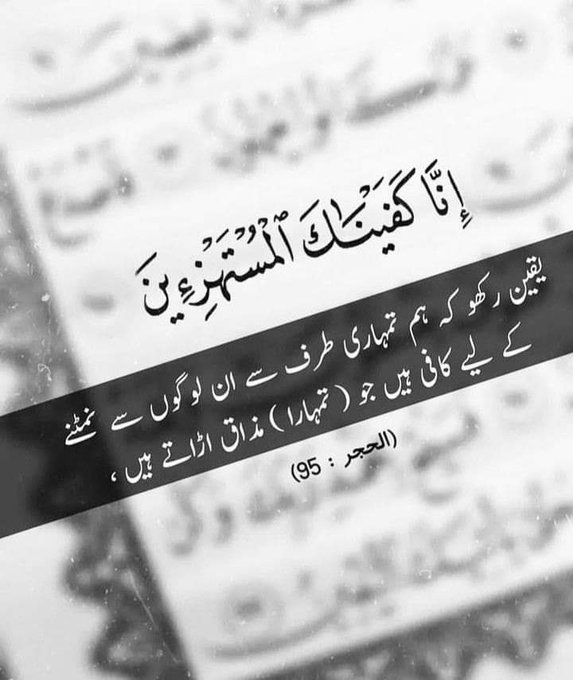 إِنَّا كَفَيْنَـٰكَ ٱلْمُسْتَهْزِءِينَ
یقین رکھو کہ ہم تمہاری طرف سے ان لوگوں سے نمٹنے
کے لیے کافی ہیں جو (تمہارا) مذاق اڑاتے ہیں،
(الحجر : 95)